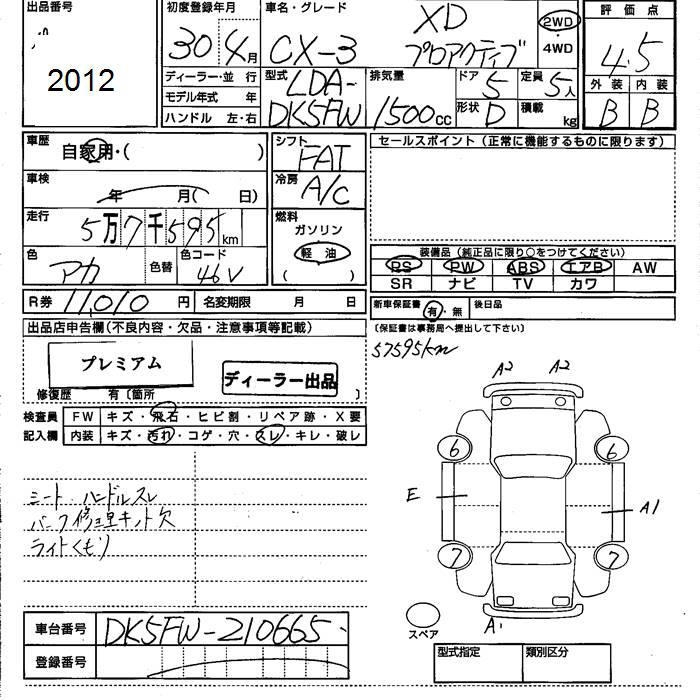 出品番号
2012
初度登録年月
30年4月
車名・グレード
CX-3 XD プロアクティブ
2WD
・4WD
評価点
4.5
外装 内装
B B
ディーラー・並 行
モデル年式 年
ハンドル 左・右
型式
LDA-
DK5FW
排気量
1500cc
ドア 5
定員 5人
形状 D
積載 kg
車歴
自家用・( )
車検
年 月( 日)
走行
5万7千595km
色
アカ
色替
色コード
46V
シフト
FAT
冷房
A/C
燃料
ガソリン
軽油
( )
セールスポイント(正常に機能するものに限ります)
装備品(純正品に限り○をつけてください)
PS PW ABS エアB AW
SR ナビ TV カワ
R券 11,010 円
名変期限 月 日
新車保証書 有・無
後日品
(保証書は事務局へ提出して下さい)
57595km
出品店申告欄(不良内容・欠品・注意事項等記載)
プレミアム
ディーラー出品
修復歴 有〔箇所 〕
検査員
記入欄
FW キズ・飛石・ヒビ割・リペア跡・X要
内装 キズ・汚れ・コゲ・穴・スレ・キレ・破レ
シート・ハンドルスレ
パンク修理キット欠
ライトくもり
A2 A2
6 6
E A1
7 7
A1
スペア
車台番号 DK5FW-210665
登録番号
型式指定 類別区分